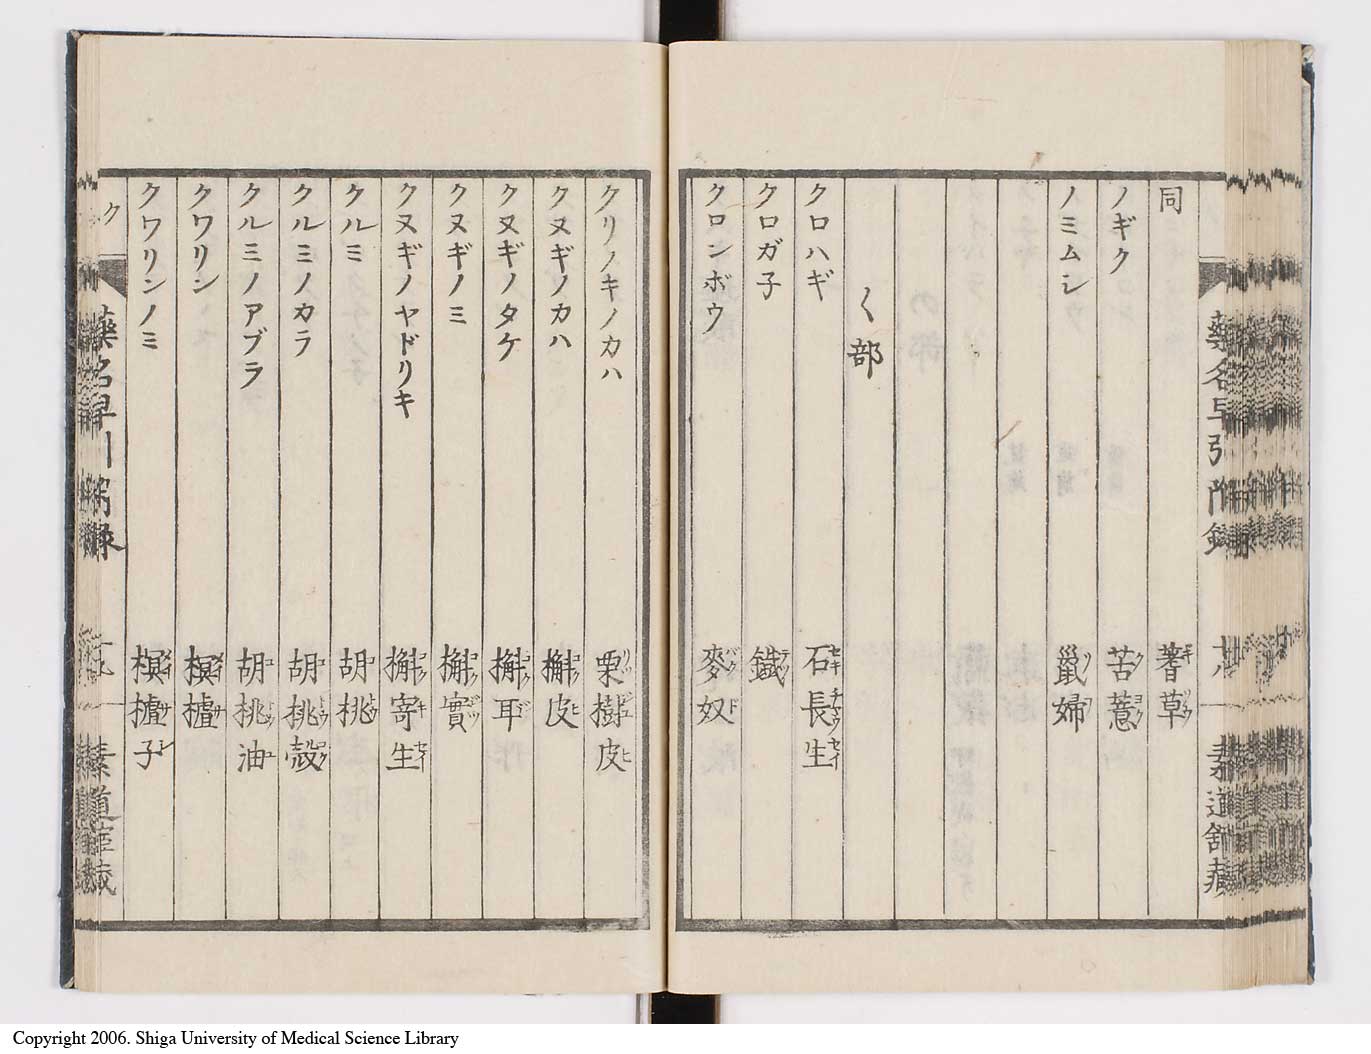 藥名早引附錄
十八
素道舍藏
同 蓍草
ノギク 苦薏
ノミムシ 鼠婦
く部
クロハギ 石長生
クロガ子 鐵
クロンボウ 麥奴
クリノキノカハ 栗樹皮
クヌギノカハ 槲皮
クヌギノタケ 槲耳
クヌギノミ 槲實
クヌギノヤドリキ 槲寄生
クルミ 胡桃
クルミノカラ 胡桃殼
クルミノアブラ 胡桃油
クワリン 榠樝
クワリンノミ 榠樝子
ク
藥名早引附錄
Copyright 2006. Shiga University of Medical Science Library